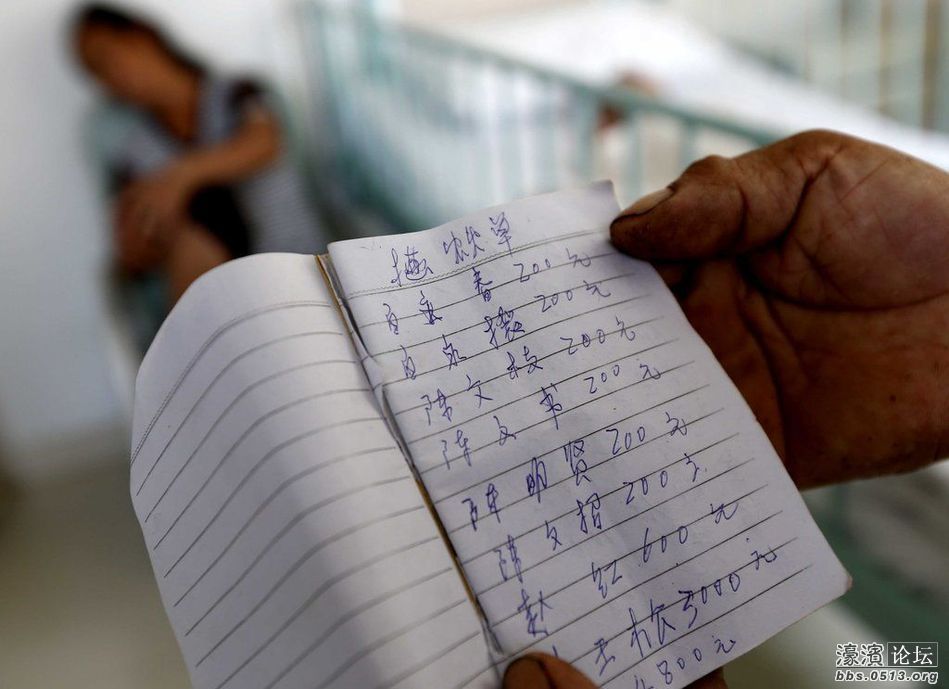 单
春 200元
200元
陈文枝 200元
陈文书 200元
陈明贤 200元
陈文招 200元
赵红 600元
3000元
4800元
濠滨论坛
bbs.0513.org